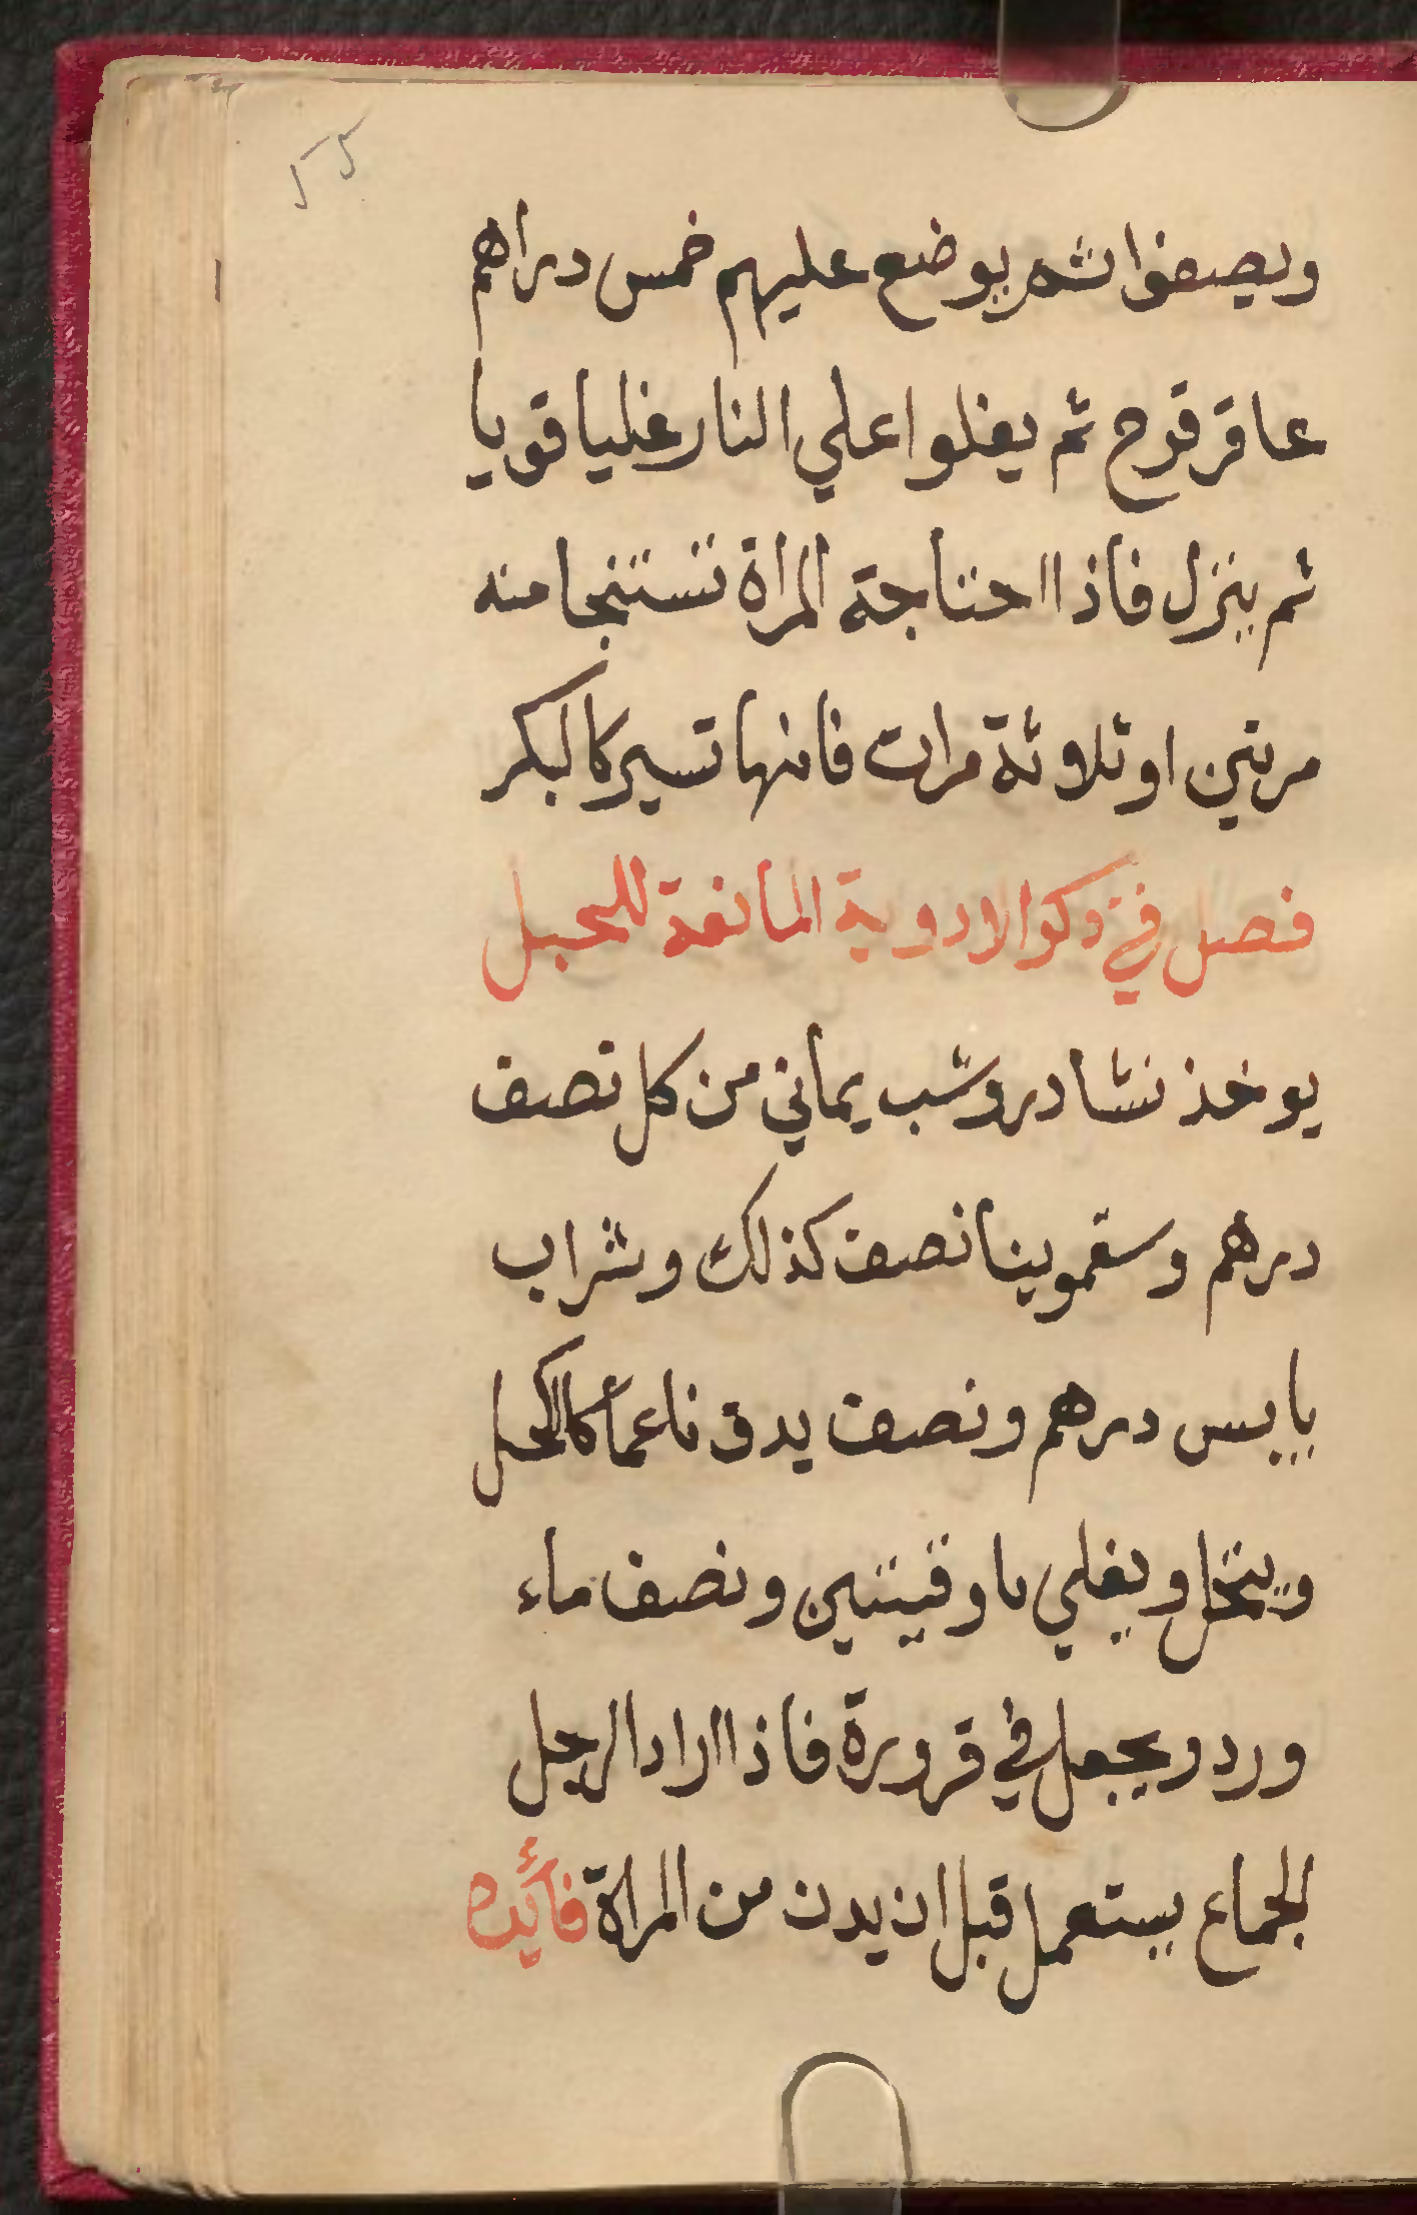 ويصفوا ثم يوضع عليهم خمس دراهم
عاقر قرح ثم يغلوا علي النار غليا قويا
ثم ينزل فاذا احتاجة المراة تستنجا منه
مرتين او ثلاوثة مرات فانها تسير كالبكر
فصل في ذكر الادوية المانعة للحبل
يوخذ نشادر وشب يماني من كل نصف
درهم وسقموينا نصف كذلك وشراب
يابس درهم ونصف يدق ناعماً كالكحل
وينخل ويغلي باوقيتين ونصف ماء
ورد ويجعل في قرورة فاذا اراد الرجل
الجماع يستعمل قبل ان يدن من المراة